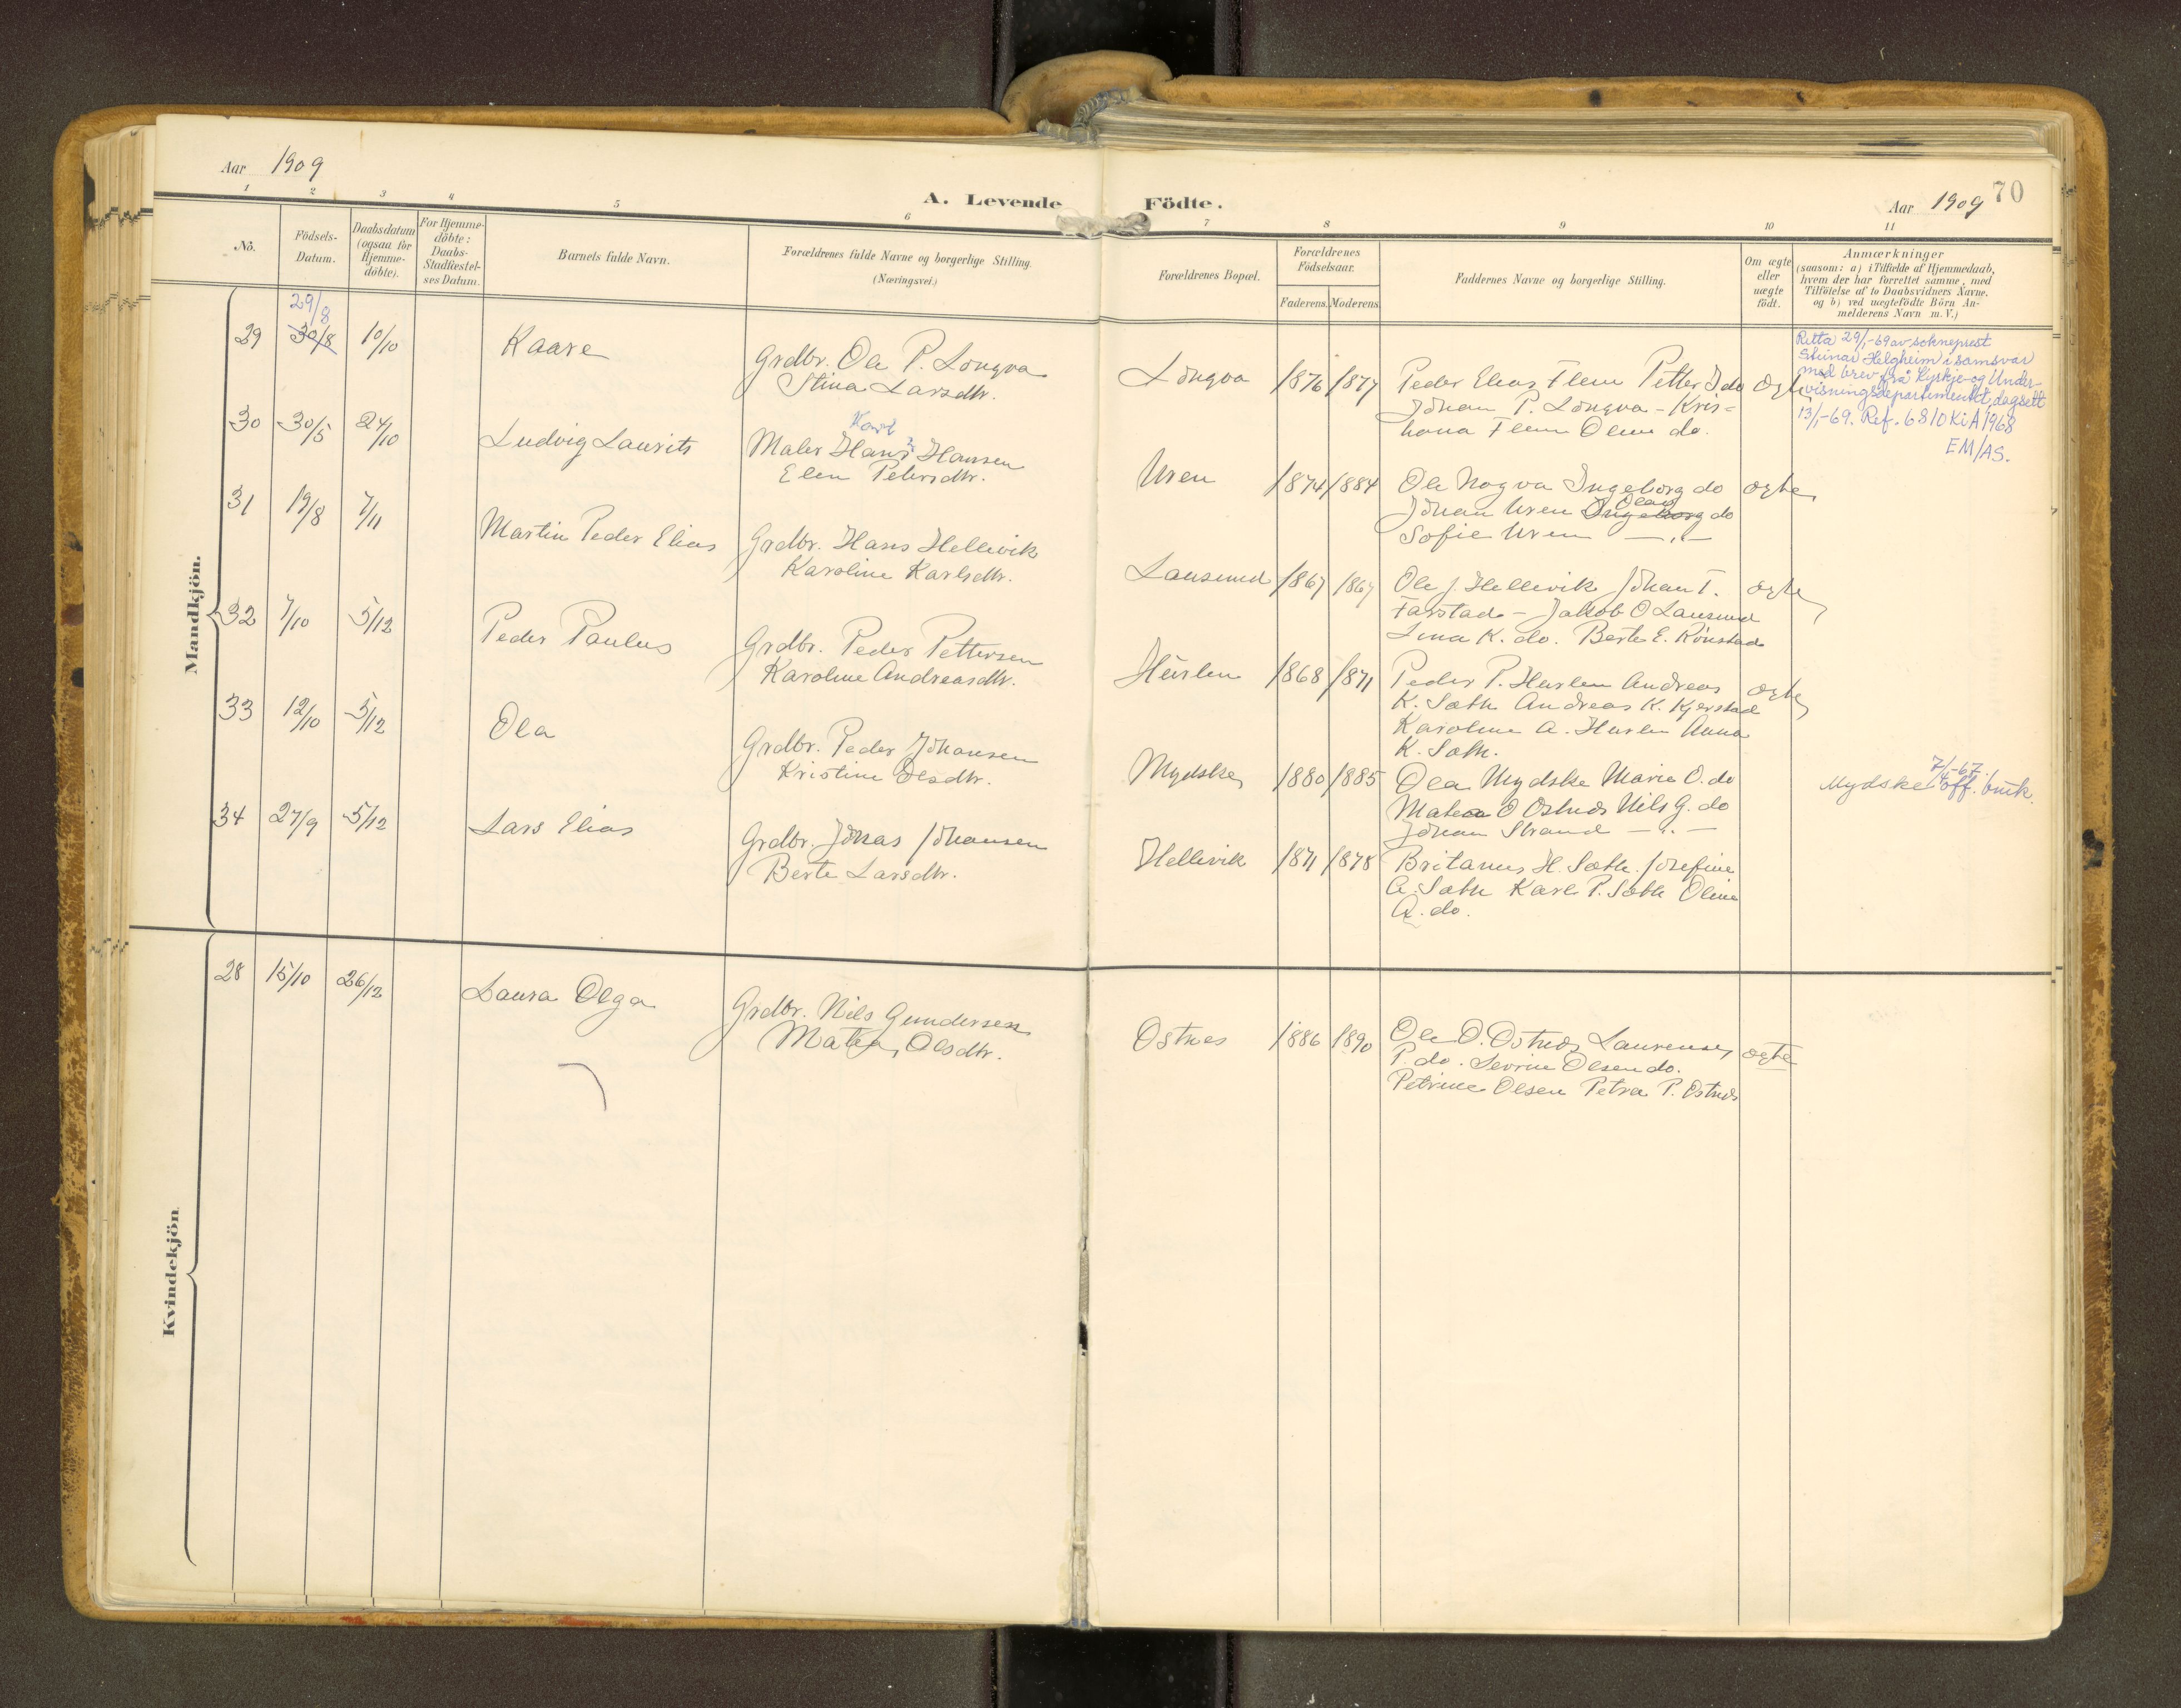 Aar 1909
A. Levende Födte.
Aar 1909 70
1 2 3 4 5 6 7 8 9 10 11
No.
Födsels-
Datum.
Daabsdatum
(ogsaa for
Hjemme-
döbte).
For Hjemme-
döbte:
Daabs-
Stadfæstel-
ses Datum.
Barnets fulde Navn.
Forældrenes fulde Navne og borgerlige Stilling.
(Næringsvei.)
Forældrenes Bopæl.
Forældrenes
Födselsaar.
Faderens. Moderens.
Faddernes Navne og borgerlige Stilling.
Om ægte
eller
uægte
födt.
Anmærkninger
(saasom: a) i Tilfælde af Hjemmedaab,
hvem der har forrettet samme, med
Tilföielse af to Daabsvidners Navne.
og b) ved uægtefödte Börn An-
melderens Navn m. V.)
Mandkjön.
29/8
29 30/8 10/10 Kaare
Grdbr. Ole P. Longva
Stina Larsdtr.
Longva 1876 1877
Peder Elias Flem Petter J do
Johan P. Longva - Kris-
hana Flem Oline do.
Retta 29/1-69 av sokneprest
Steinar Helgheim i samsvar
med brev frå Kyrkje- og Under-
visningsdepartementet, dagsett
13/1-69. Ref. 6810 Ki A 1968
EM/AS.
30 30/5 24/10 Ludvig Laurits
Karl
Maler Hans Hansen
Elen Petersdtr.
Uren 1874 1884
Ole Nogva Ingeborg do
Johan Uren Ingeborg do
Olav
Sofie Uren —"—
ægte
31 19/8 7/11 Martin Peder Elias
Grdbr. Hans Hellevik
Karoline Karlsdtr.
Lausund 1867 1867
Ole J. Hellevik Johan T.
Farstad - Jakob O Lausund
Lina K. do. Berte E. Rönstad
ægte
32 7/10 5/12 Peder Paulus
Grdbr. Peder Pettersen
Karoline Andreasdtr.
Hurlen 1868 1871
Peder P. Hurlen Andreas
K. Sæth Andreas K. Kjerstad
Karoline A. Hurlen Anna
K. Sæth.
ægte
33 12/10 5/12 Ola
Grdbr. Peder Johansen
Kristine Olsdtr.
Mydske 1880 1885
Ola Mydske Marie O. do
Matea O Ostnes Nils G. do
Johan Strand —"—
7/4-67.
Mydske off. bruk.
34 27/9 5/12 Lars Elias
Grdbr. Jonas Johansen
Berte Larsdtr.
Hellevik 1871 1878
Britanus H. Sæth. Josefine
A. Sæth Karl P. Sæth Oline
A. do.
Kvindekjön
28 15/10 26/12 Laura Olga
Grdbr. Nils Gundersen
Matea Olsdtr.
Ostnes 1886 1890
Ole O. Ostnes Laurense
P. do. Sevrine Olsen do.
Petrine Olsen Petra P. Ostnes
ægte